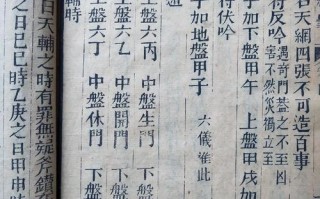 名天網四張不可造百事
符反吟 遇奇門蓋之不至凶
害不然災禍立至
子加下盤甲午 上盤甲戌加
符伏吟
子加地盤甲子 六儀此
上盤六丙 中盤生門 下盤
上盤六乙 中盤開門 下盤
上盤六丁 中盤休門 下盤
輔時
曰天輔之時有罪無疑斧鑕在
之日己巳時乙庚之日甲申時